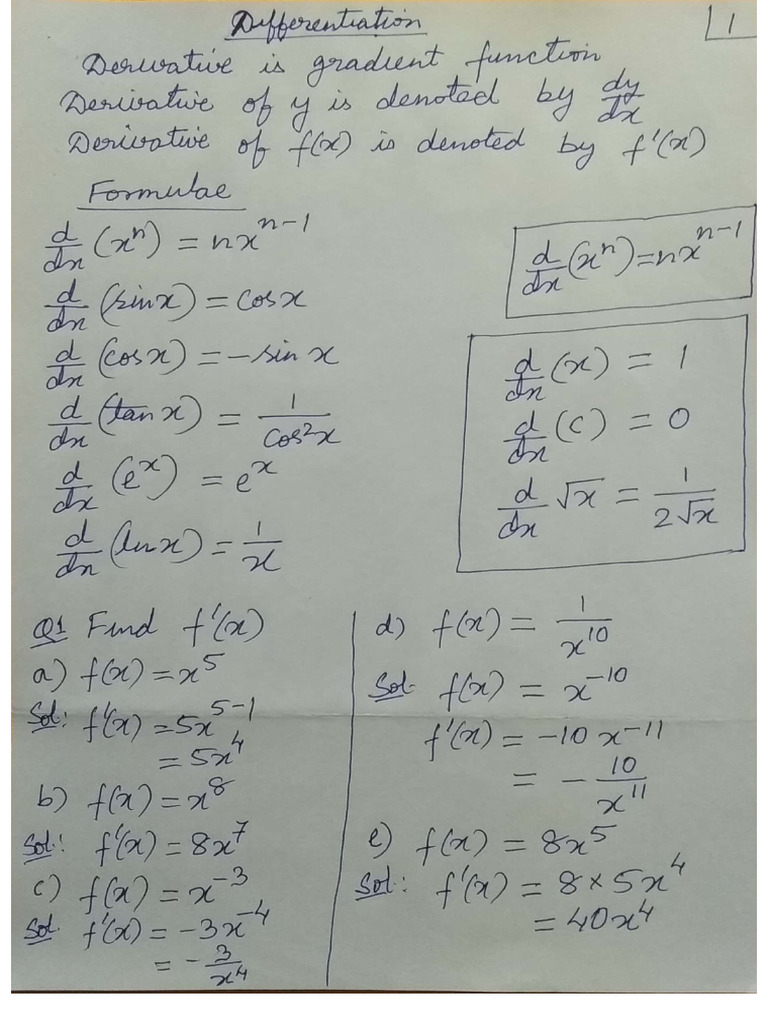 Differentiation
1
Derivative is gradient function
Derivative of y is denoted by dy/dx
Derivative of f(x) is denoted by f'(x)
Formulae
d/dx (xⁿ) = nxⁿ⁻¹
d/dx (sinx) = cosx
d/dx (cosx) = -sin x
d/dx (tanx) = 1/cos²x
d/dx (eˣ) = eˣ
d/dx (lnx) = 1/x
d/dx (xⁿ) = nxⁿ⁻¹
d/dx (x) = 1
d/dx (c) = 0
d/dx √x = 1/2√x
Q1 Find f'(x)
a) f(x) = x⁵
Sol: f'(x) = 5x⁵⁻¹
= 5x⁴
b) f(x) = x⁸
Sol: f'(x) = 8x⁷
c) f(x) = x⁻³
Sol. f'(x) = -3x⁻⁴
= -3/x⁴
d) f(x) = 1/x¹⁰
Sol. f(x) = x⁻¹⁰
f'(x) = -10 x⁻¹¹
= - 10/x¹¹
e) f(x) = 8x⁵
Sol: f'(x) = 8 × 5x⁴
= 40x⁴